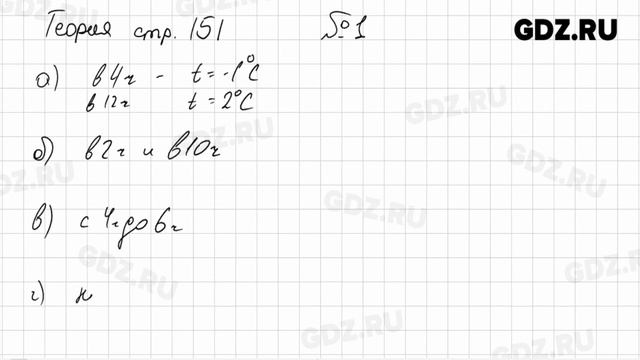 Теория стр. 151 №1 GDZ.RU
а) в 4ч - t = -1°C
в 12ч t = 2°C
б) в 2ч и в 10ч
в) с 4ч до 6ч
г) н
GDZ.RU
GDZ.RU
GDZ.RU
GDZ.RU
GDZ.RU
GDZ.RU
GDZ.RU
GDZ.RU